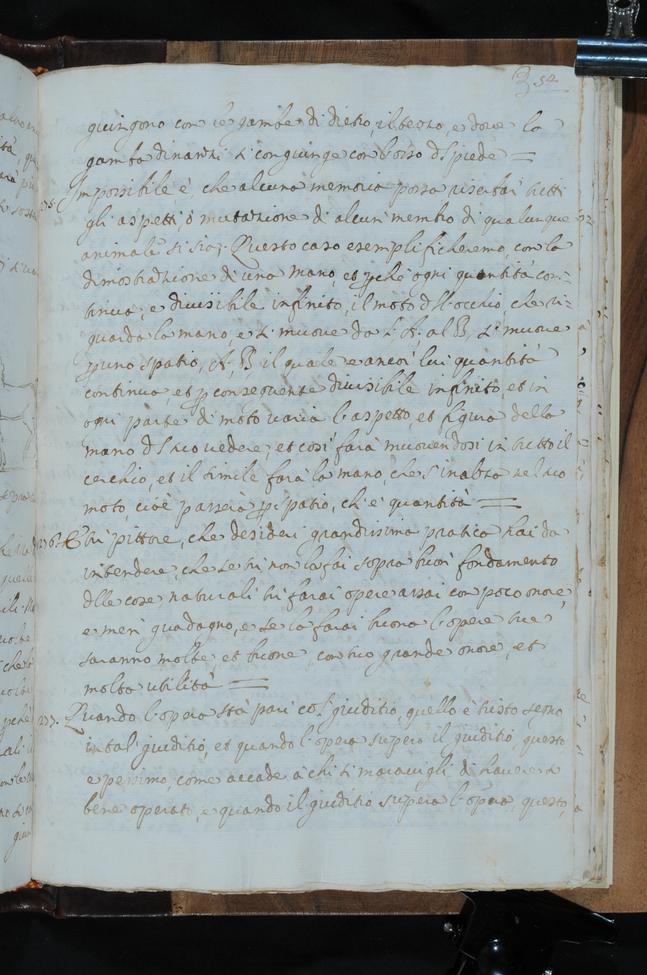 52
giungono con le gambe di dietro, il terzo, e dove la
gamba dinanzi si congiunge con dosso d'l piede =
275. Impossibile è, che alcuna memoria possa riserbar tutti
gli aspetti, ò mutazione di alcun membro di qualunque
animale si sia; Questo caso esemplificheremo con la
dimostrazione di una mano, et perchè ogni quantità con-
tinua, e divisibile infinito, il moto d'll'occhio, che ri-
guarda la mano, e si muove da l'A, al B, si muove
per uno spatio, A, B il quale e ancor lui quantità
continua et per conseguente divisibile infinito, et in
ogni parte di moto varia l'aspetto, et figura della
mano d'l suo vedere; et così farà muovendosi in tutto il
cerchio, et il simile farà la mano, che s'inalza nel suo
moto cioè passerà per spatio, ch'è quantità =
276. E tu pittore, che desideri grandissima pratica hai da
intendere, che se tu non la fai sopra buon fondamento
d'lle cose naturali tu farai opere assai con poco onore,
e men guadagno, e se la farai buona l'opere tue
saranno molte, et buone, con tuo grande onore, et
molta utilità =
277. Quando l'opera stà pari co'l giuditio, quello è tristo segno
in tal giuditio, et quando l'opera supera il giuditio, questo
e pessimo, come accade a chi si maravigli di havere si
bene operato, e quando il giuditio supera l'opera, questo,